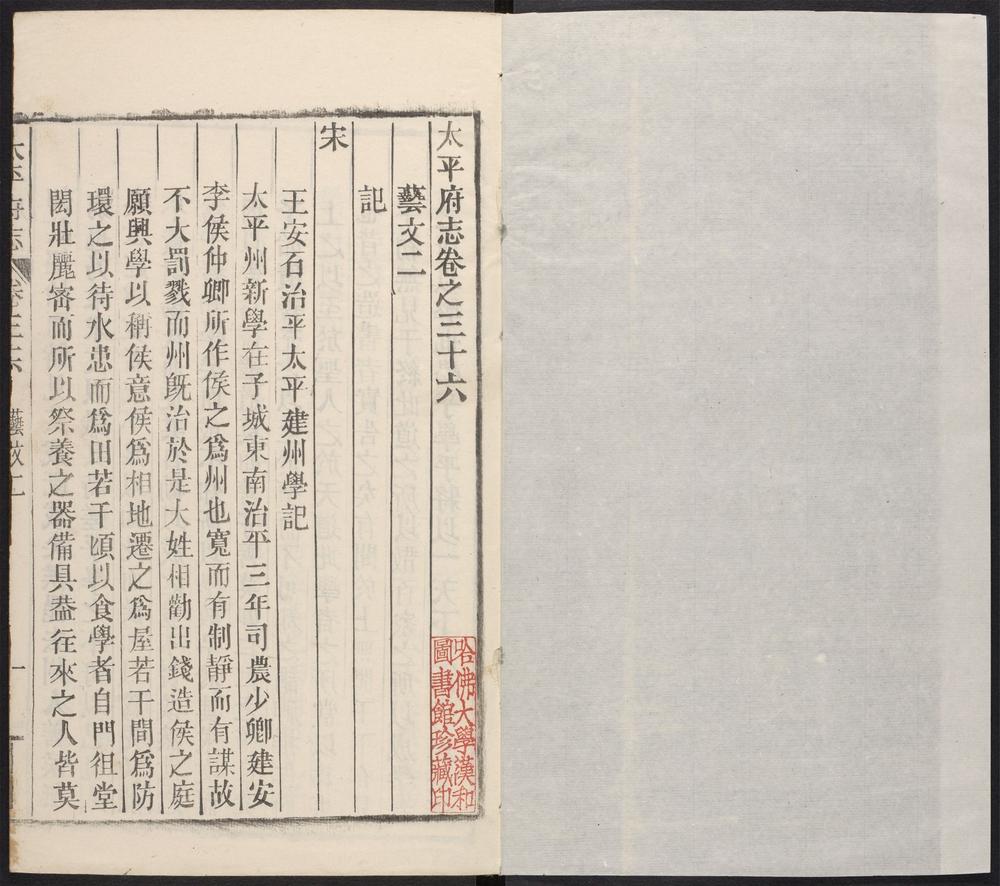 太平府志卷之三十六
藝文二
記
宋
王安石治平太平建州學記
太平州新學在子城東南治平三年司農少卿建安
李侯仲卿所作侯之爲州也寬而有制靜而有謀故
不大罰戮而州旣治於是大姓相勸出錢造侯之庭
願興學以稱侯意侯爲相地遷之爲屋若干間爲防
環之以待水患而爲田若干頃以食學者自門徂堂
閎壯麗密而所以祭養之器備具葢徃來之人皆莫
太平府志
藝文二
一
哈佛大學漢和
圖書館珍藏印